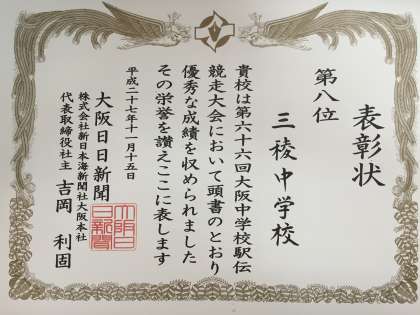 表彰状
第八位
三稜中学校
貴校は第六十六回大阪中学校駅伝
競走大会において頭書のとおり
優秀な成績を収められました
その栄誉を讃えここに表します
平成二十七年十一月十五日
大阪日日新聞
株式会社新日本海新聞社大阪本社
代表取締役社主 吉岡 利固
大阪日
日新聞